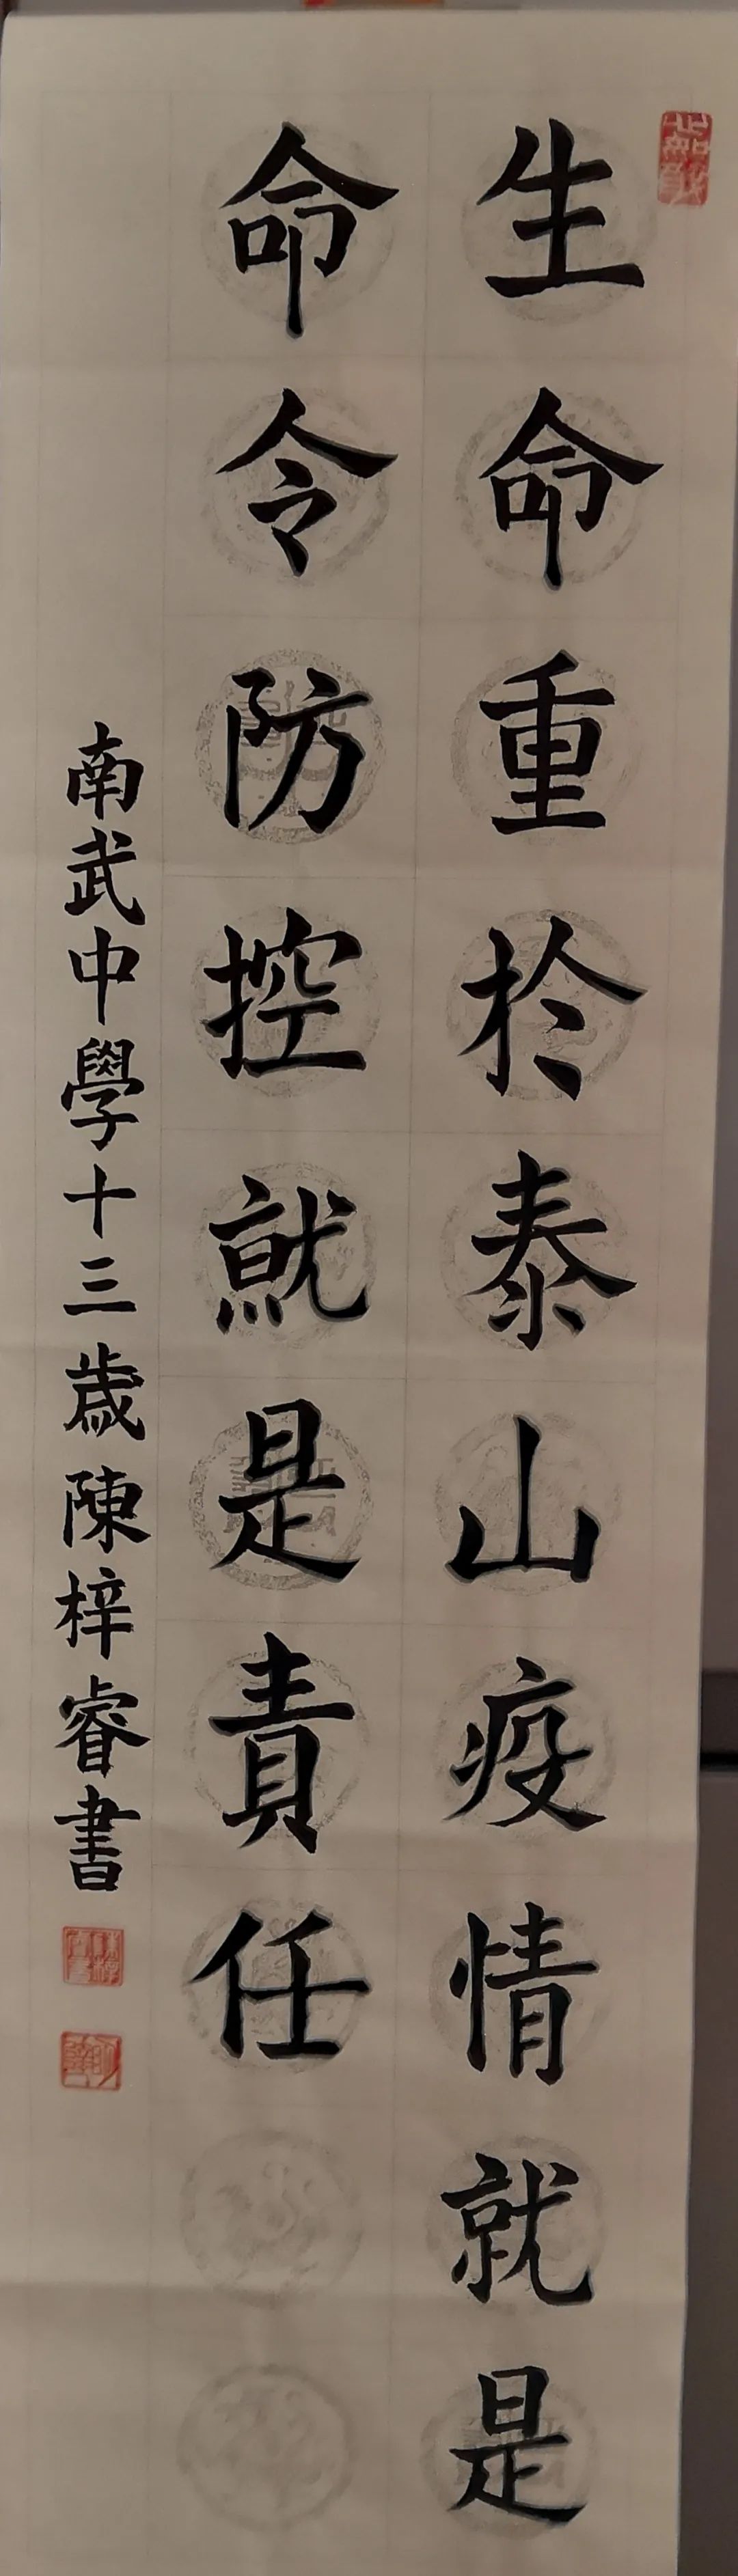 生命重於泰山疫情就是
命令防控就是責任
南武中學十三歲陳梓睿書